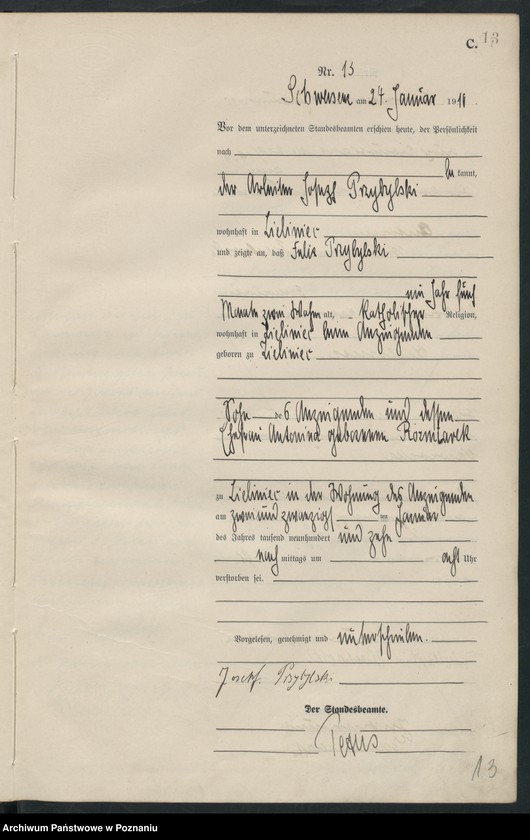 C. 13
Nr. 13
Schwersenz am 24. Januar 1910
Vor dem unterzeichneten Standesbeamten erschien heute, der Persönlichkeit
nach
be kannt,
der Arbeiter Joseph Przybylski
wohnhaft in Zieliniec
und zeigte an, daß Felix Przybylski
ein Jahr fünf
Monate zwei Wochen alt, katholischer Religion,
wohnhaft in Zieliniec beim Anzeigenden
geboren zu Zieliniec
Sohn des Anzeigenden und dessen
Ehefrau Antonina geborenen Rozmiarek
zu Zieliniec in der Wohnung des Anzeigenden
am zweiundzwanzigsten ten Januar
des Jahres tausend neunhundert und zehn
nach mittags um acht Uhr
verstorben sei.
Vorgelesen, genehmigt und unterschrieben.
Josef. Przybylski.
Der Standesbeamte.
13
Archiwum Państwowe w Poznaniu